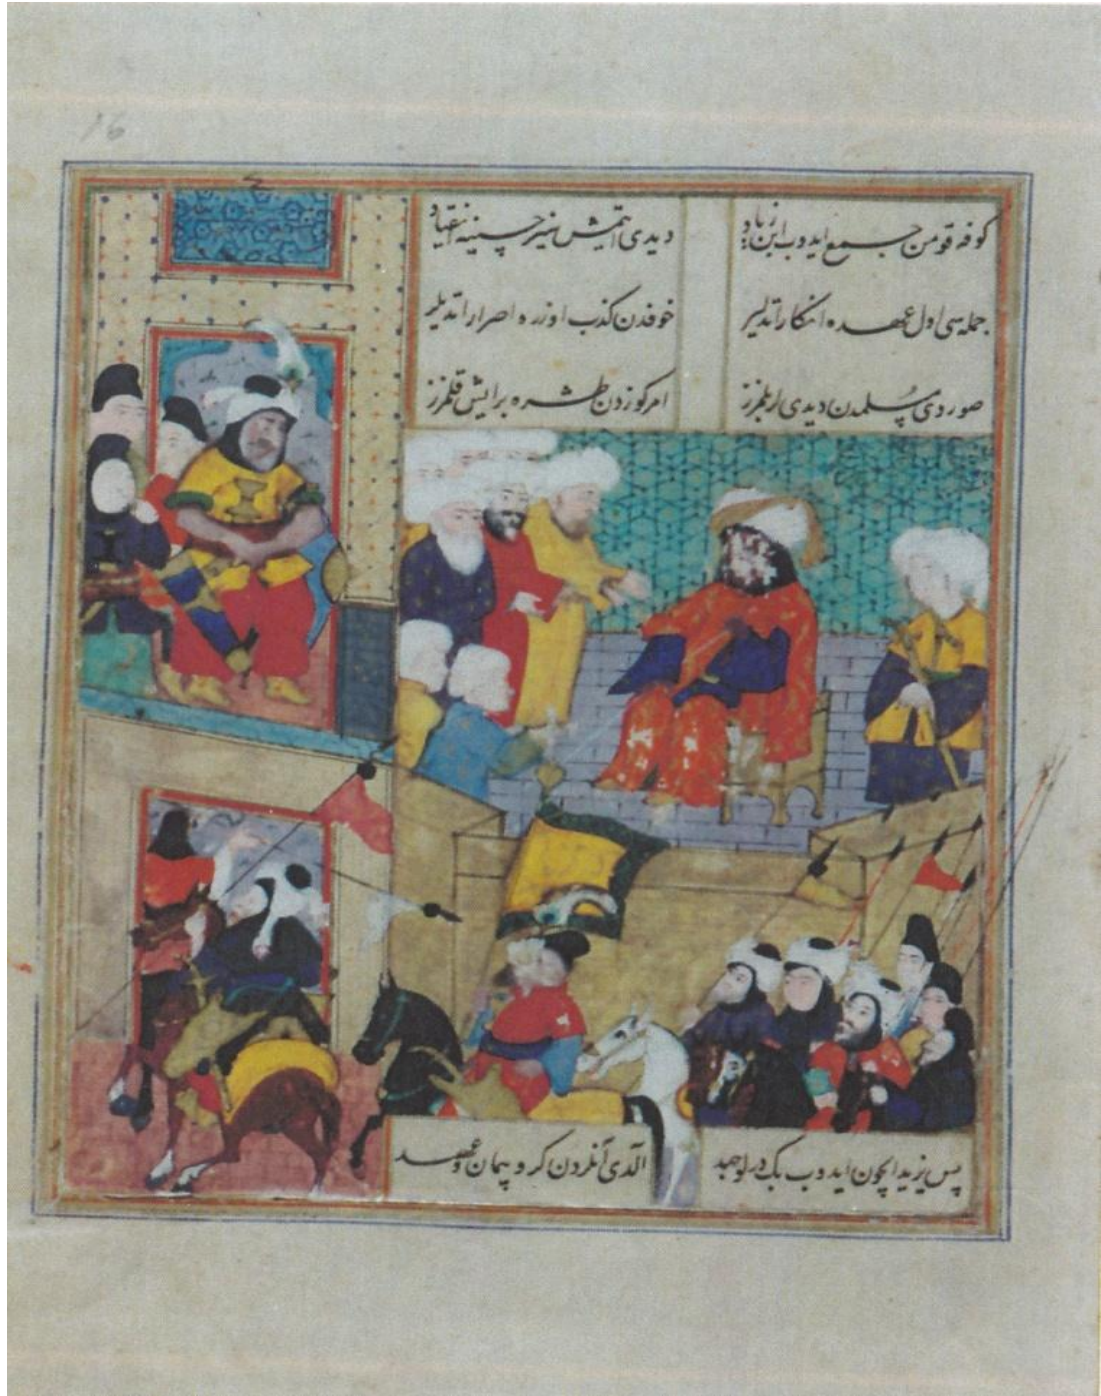 16
کوفه قومن جمع ایدوب ابن زیاد
دیدی ایتمش سیز حسینه انقیاد
جمله سی اول عهده انکار اتدیلر
خوفدن کذب اوزره اصرار اتدیلر
صوردی مسلمدن دیدیلر بلمزز
امرکوزدن طشره بر ایش قلمزز
پس یزید ایچون ایدوب بک درلو جهد
الدی آنلردن کرو پیمان و عهد